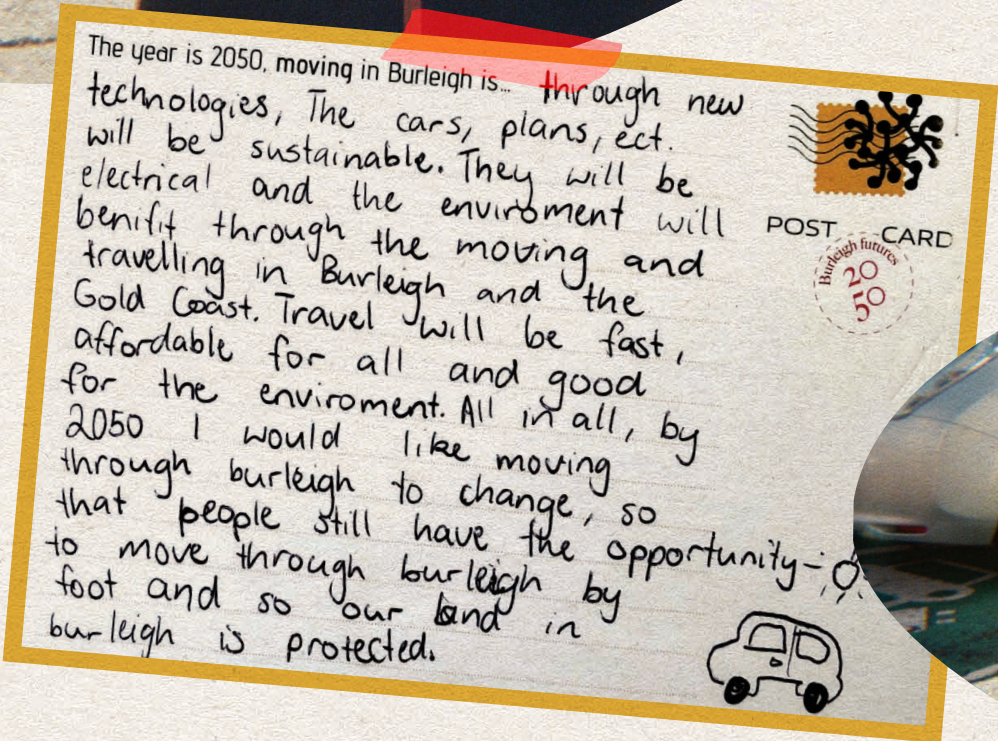 The year is 2050, moving in Burleigh is... through new
technologies, The cars, plans, ect.
will be sustainable. They will be
electrical and the enviroment will
benifit through the moving and
travelling in Burleigh and the
Gold Coast. Travel will be fast,
affordable for all and good
for the enviroment. All in all, by
2050 I would like moving
through burleigh to change, so
that people still have the opportunity
to move through burleigh by
foot and so our land in
burleigh is protected.
POST CARD
Burleigh futures
20
50